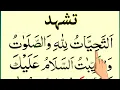 تشہد
اَلتَّحِيَّاتُ لِلّٰهِ وَالصَّلَوٰتُ
وَالطَّيِّبٰتُ اَلسَّلَامُ عَلَيْكَ